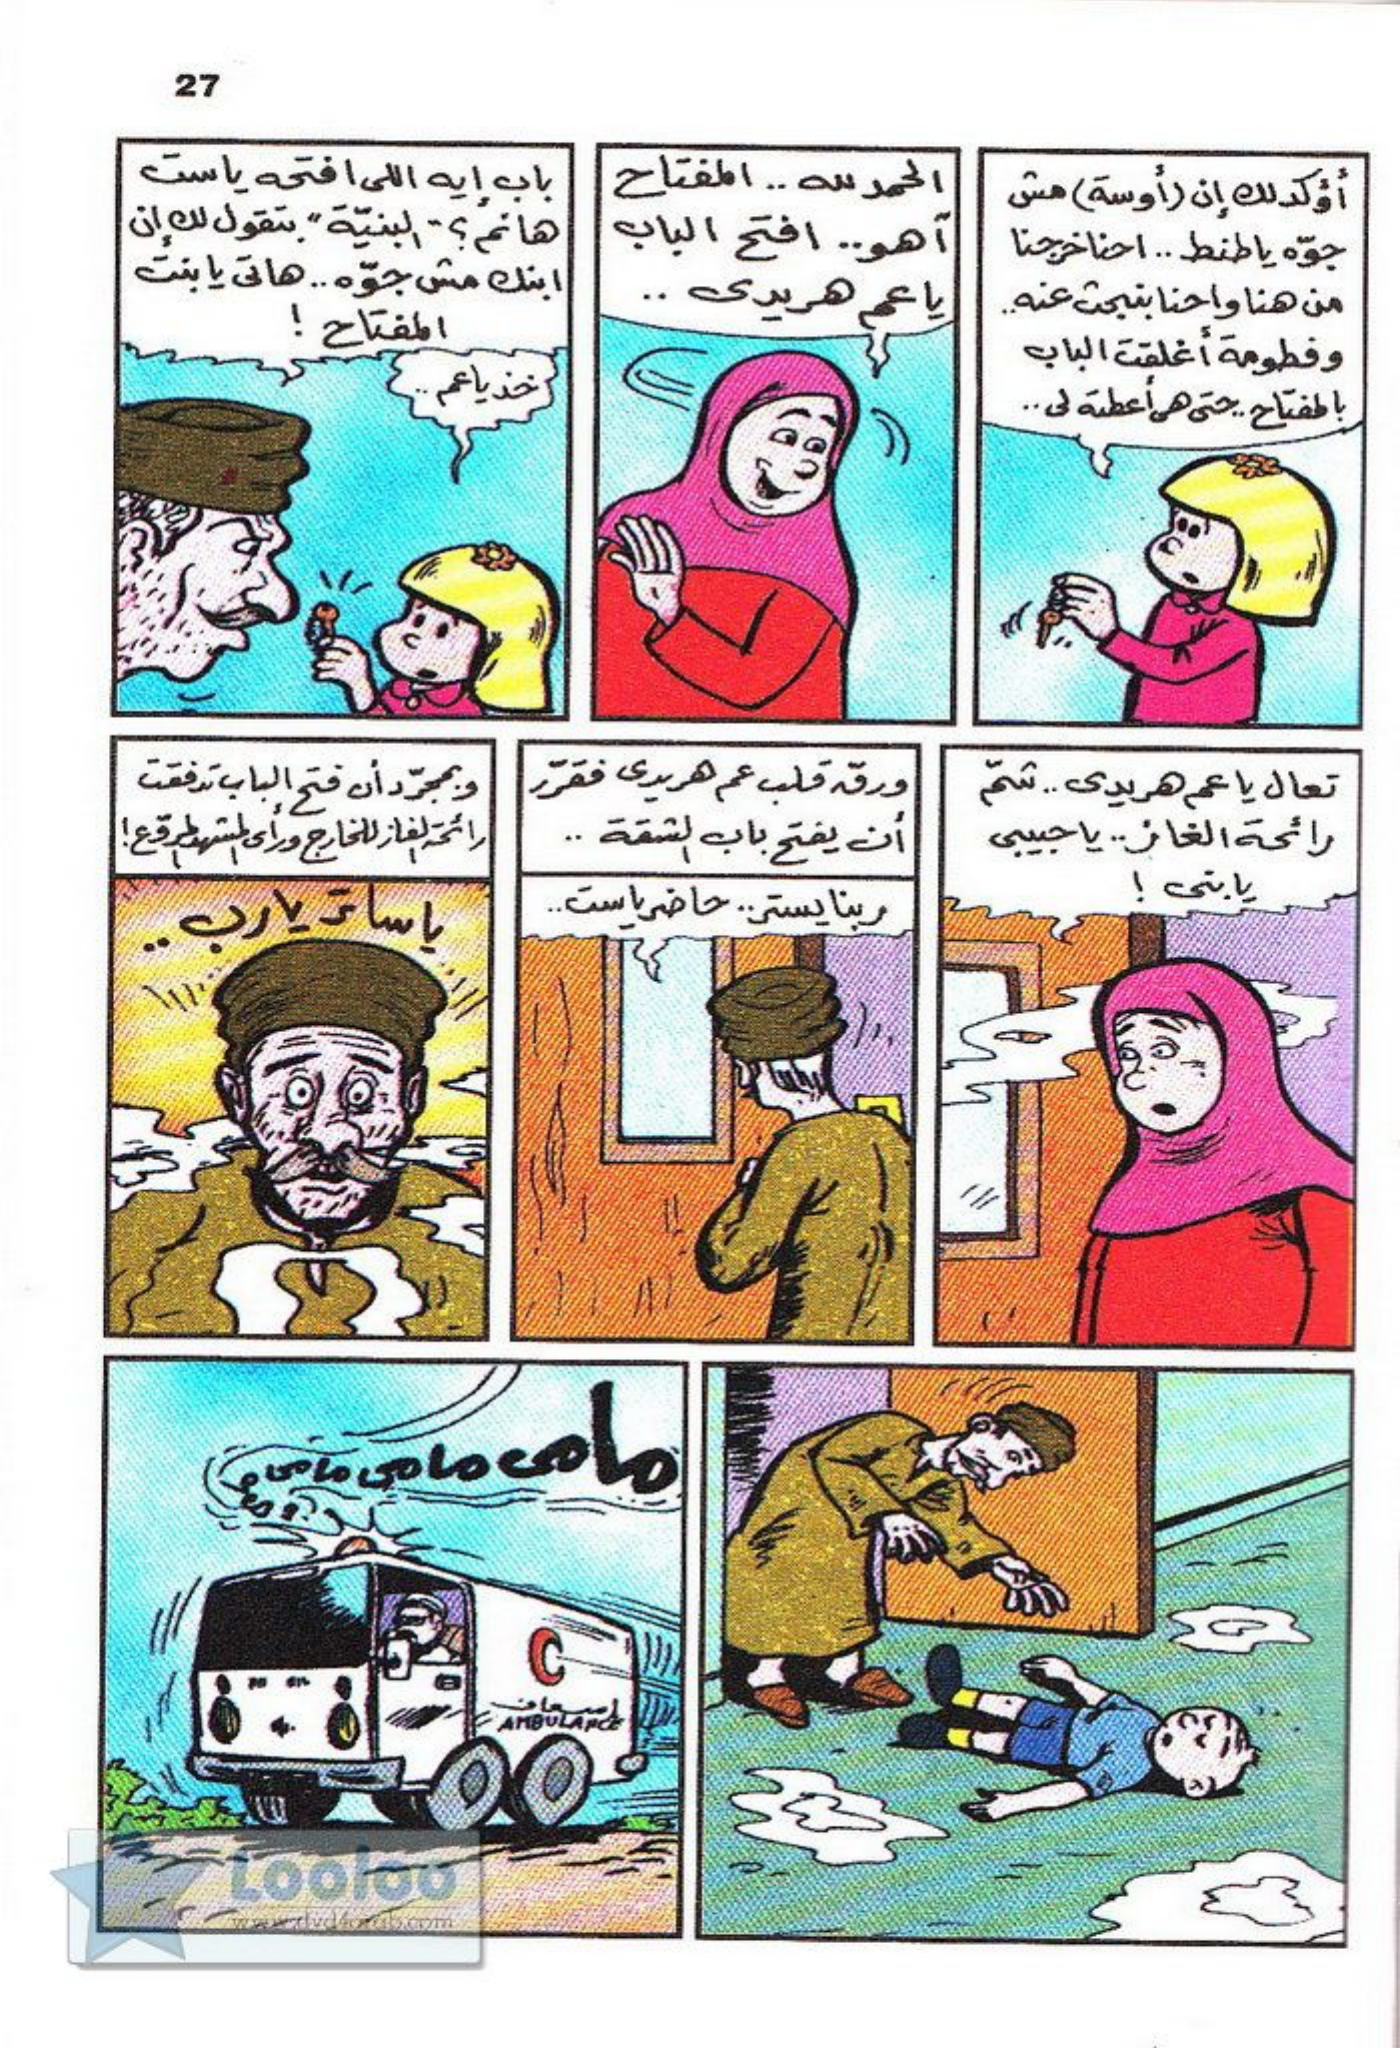 27
أؤكد لك إن (أوسة) مش
جوّه يا طنط .. احنا خرجنا
من هنا واحنا بنبحث عنه ..
وفطومة أغلقت الباب
بالمفتاح .. حتى هى أعطته لى ..
الحمد لله .. المفتاح
آهو .. افتح الباب
يا عم هريدى ..
باب إيه اللى افتحه ياست
هانم ؟ "البنيّة" بتقول لك إن
ابنك مش جوّه .. هاتى يا بنت
المفتاح !
خد ياعم ..
تعال يا عم هريدى .. شمّ
رائحة الغاز .. يا حبيبى
يا بنى !
ورقّ قلب عم هريدى فقرّر
أن يفتح باب الشقة ..
ربنا يستر .. حاضر ياست ..
وبمجرّد أن فتح الباب تدفقت
رائحة الغاز للخارج ورأى المشهد المروّع !
يا ساتر يا رب ..
مامى مامى مامى
إسعاف
AMBULANCE
Looloo
www.dvd4arab.com